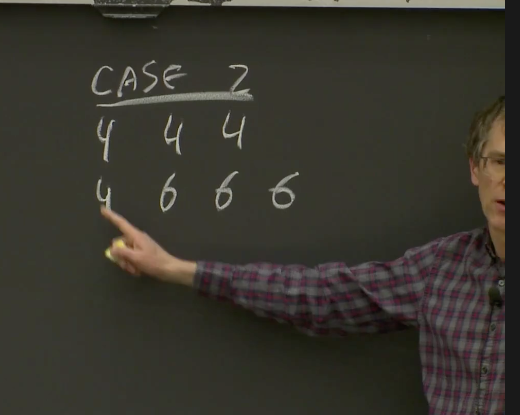 CASE 2
4 4 4
4 6 6 6